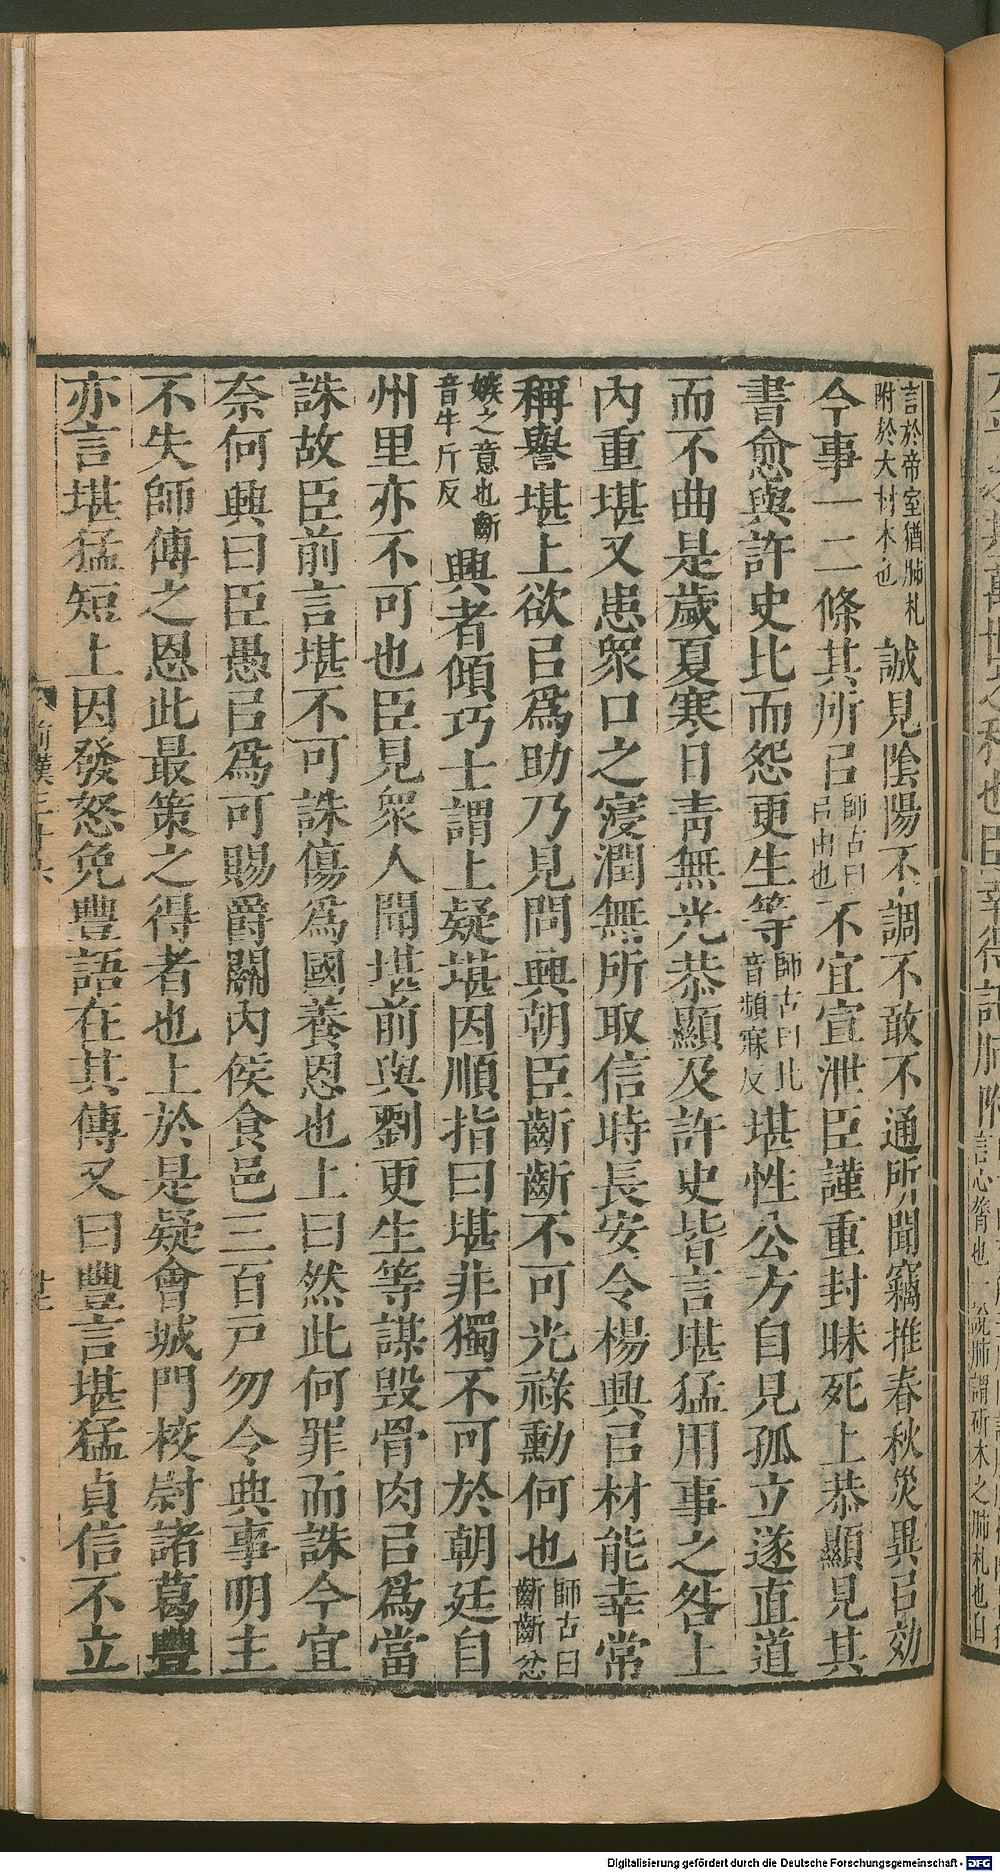 言於帝室猶肺札
附於大材木也
誠見陰陽不調不敢不通所聞竊推春秋災異㠯効
今事一二條其所㠯
師古曰
㠯由也
不宜宣泄臣謹重封昧死上恭顯見其
書愈與許史比而怨更生等
師古曰比
音頻寐反
堪性公方自見孤立遂直道
而不曲是歲夏寒日青無光恭顯及許史皆言堪猛用事之咎上
內重堪又患衆口之寖潤無所取信時長安令楊興㠯材能幸常
稱譽堪上欲㠯爲助乃見問興朝臣齗齗不可光祿勳何也
師古曰
齗齗忿
嫉之意也齗
音牛斤反
興者傾巧士謂上疑堪因順指曰堪非獨不可於朝廷自
州里亦不可也臣見衆人聞堪前與劉更生等謀毀骨肉㠯爲當
誅故臣前言堪不可誅傷爲國養恩也上曰然此何罪而誅今宜
奈何興曰臣愚㠯爲可賜爵關內侯食邑三百戸勿令典事明主
不失師傅之恩此最策之得者也上於是疑會城門校尉諸葛豐
亦言堪猛短上因發怒免豐語在其傳又曰豐言堪猛貞信不立
前漢三十六